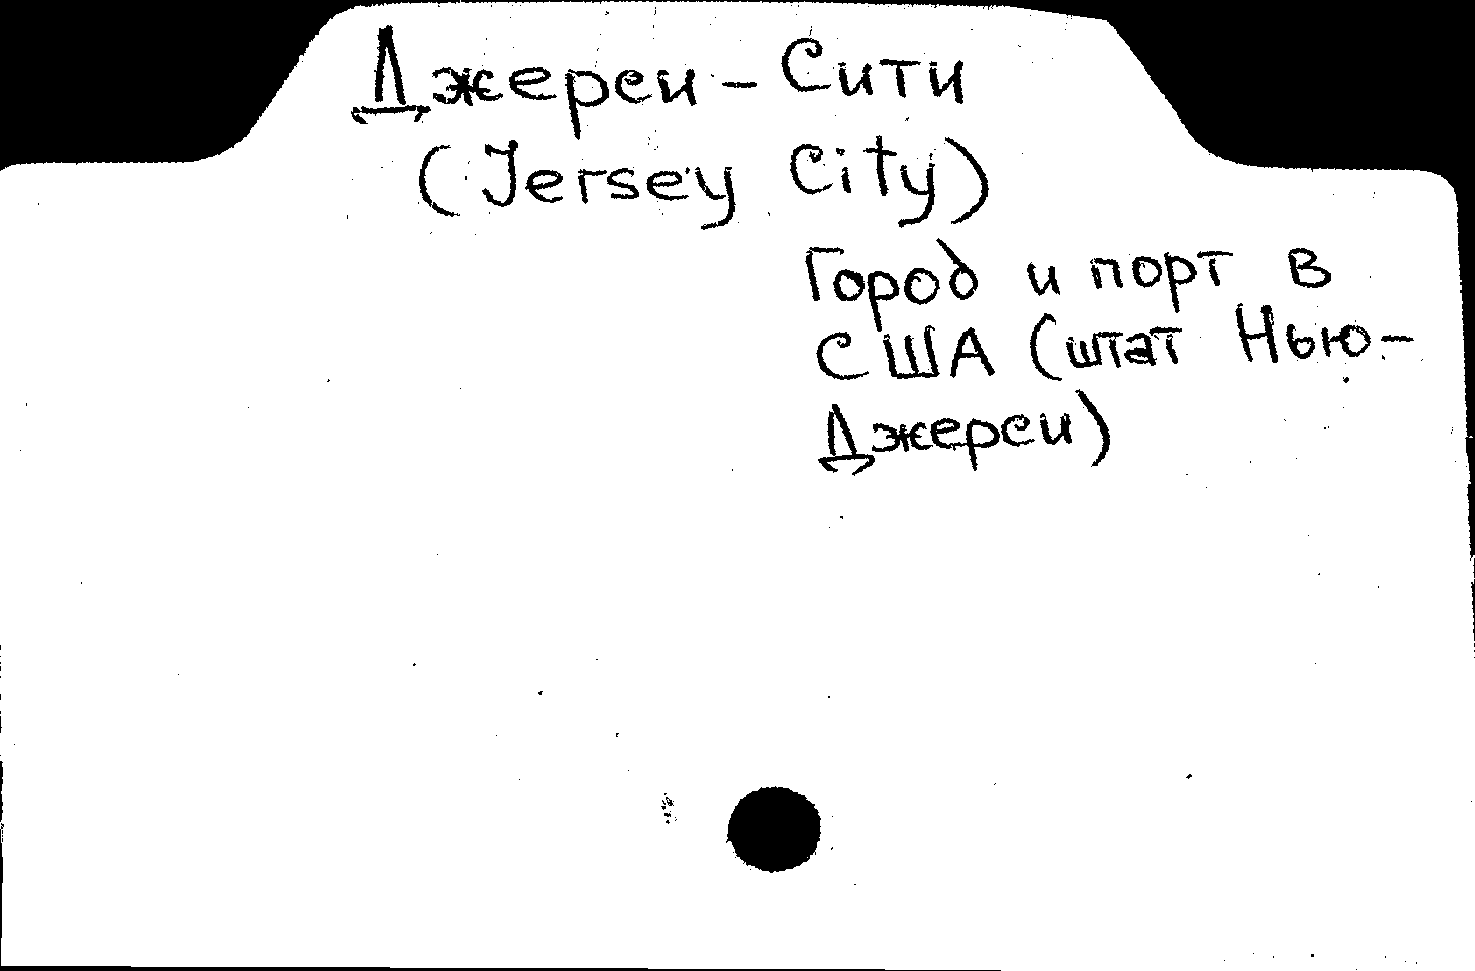 Джерси-Сити
(Jersey City)
Город и порт в
США (штат Нью-
Джерси)